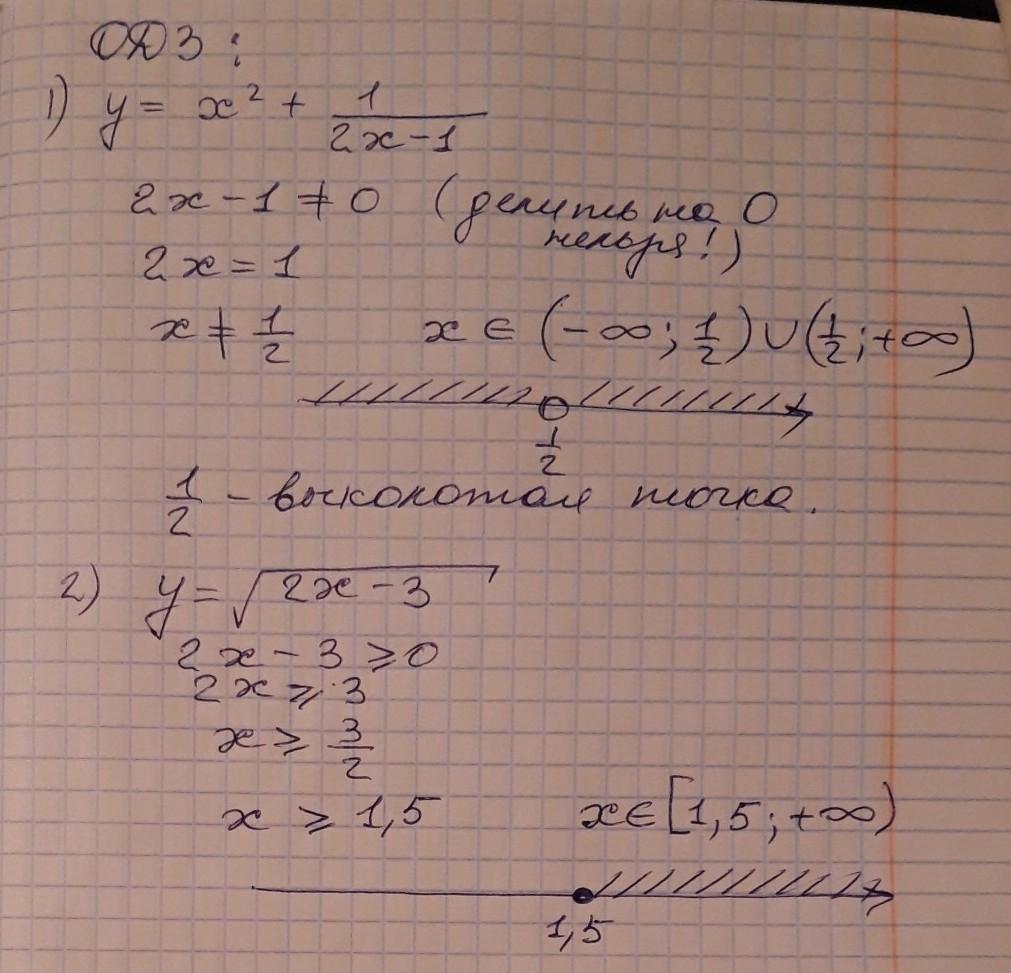 ОДЗ:
1) y = x² + 1/(2x-1)
2x-1 ≠ 0 (делить на 0
нельзя!)
2x = 1
x ≠ 1/2 x ∈ (-∞; 1/2) ∪ (1/2; +∞)
1/2
1/2 - выколотая точка.
2) y = √(2x-3)
2x-3 ⩾ 0
2x ⩾ 3
x ⩾ 3/2
x ⩾ 1,5 x ∈ [1,5; +∞)
1,5